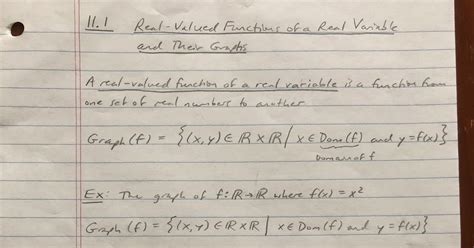 11.1 Real-Valued Functions of a Real Variable
and Their Graphs
A real-valued function of a real variable is a function from
one set of real numbers to another
Graph (f) = {(x,y) ∈ ℝ × ℝ | x ∈ Dom(f) and y = f(x)}
Domain of f
Ex: The graph of f: ℝ → ℝ where f(x) = x²
Graph (f) = {(x,y) ∈ ℝ × ℝ | x ∈ Dom(f) and y = f(x)}